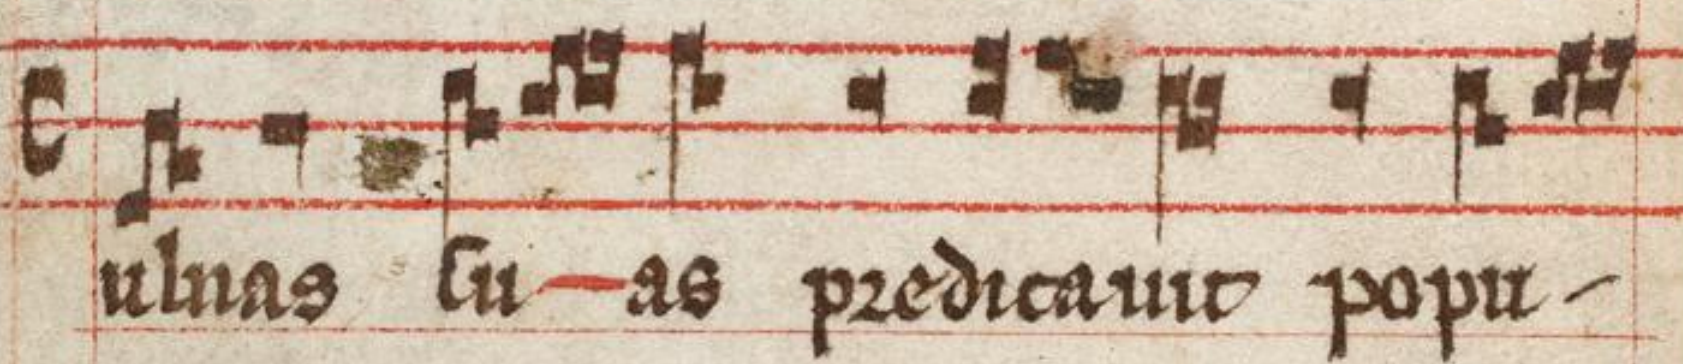 ulnas su-as predicauit popu-